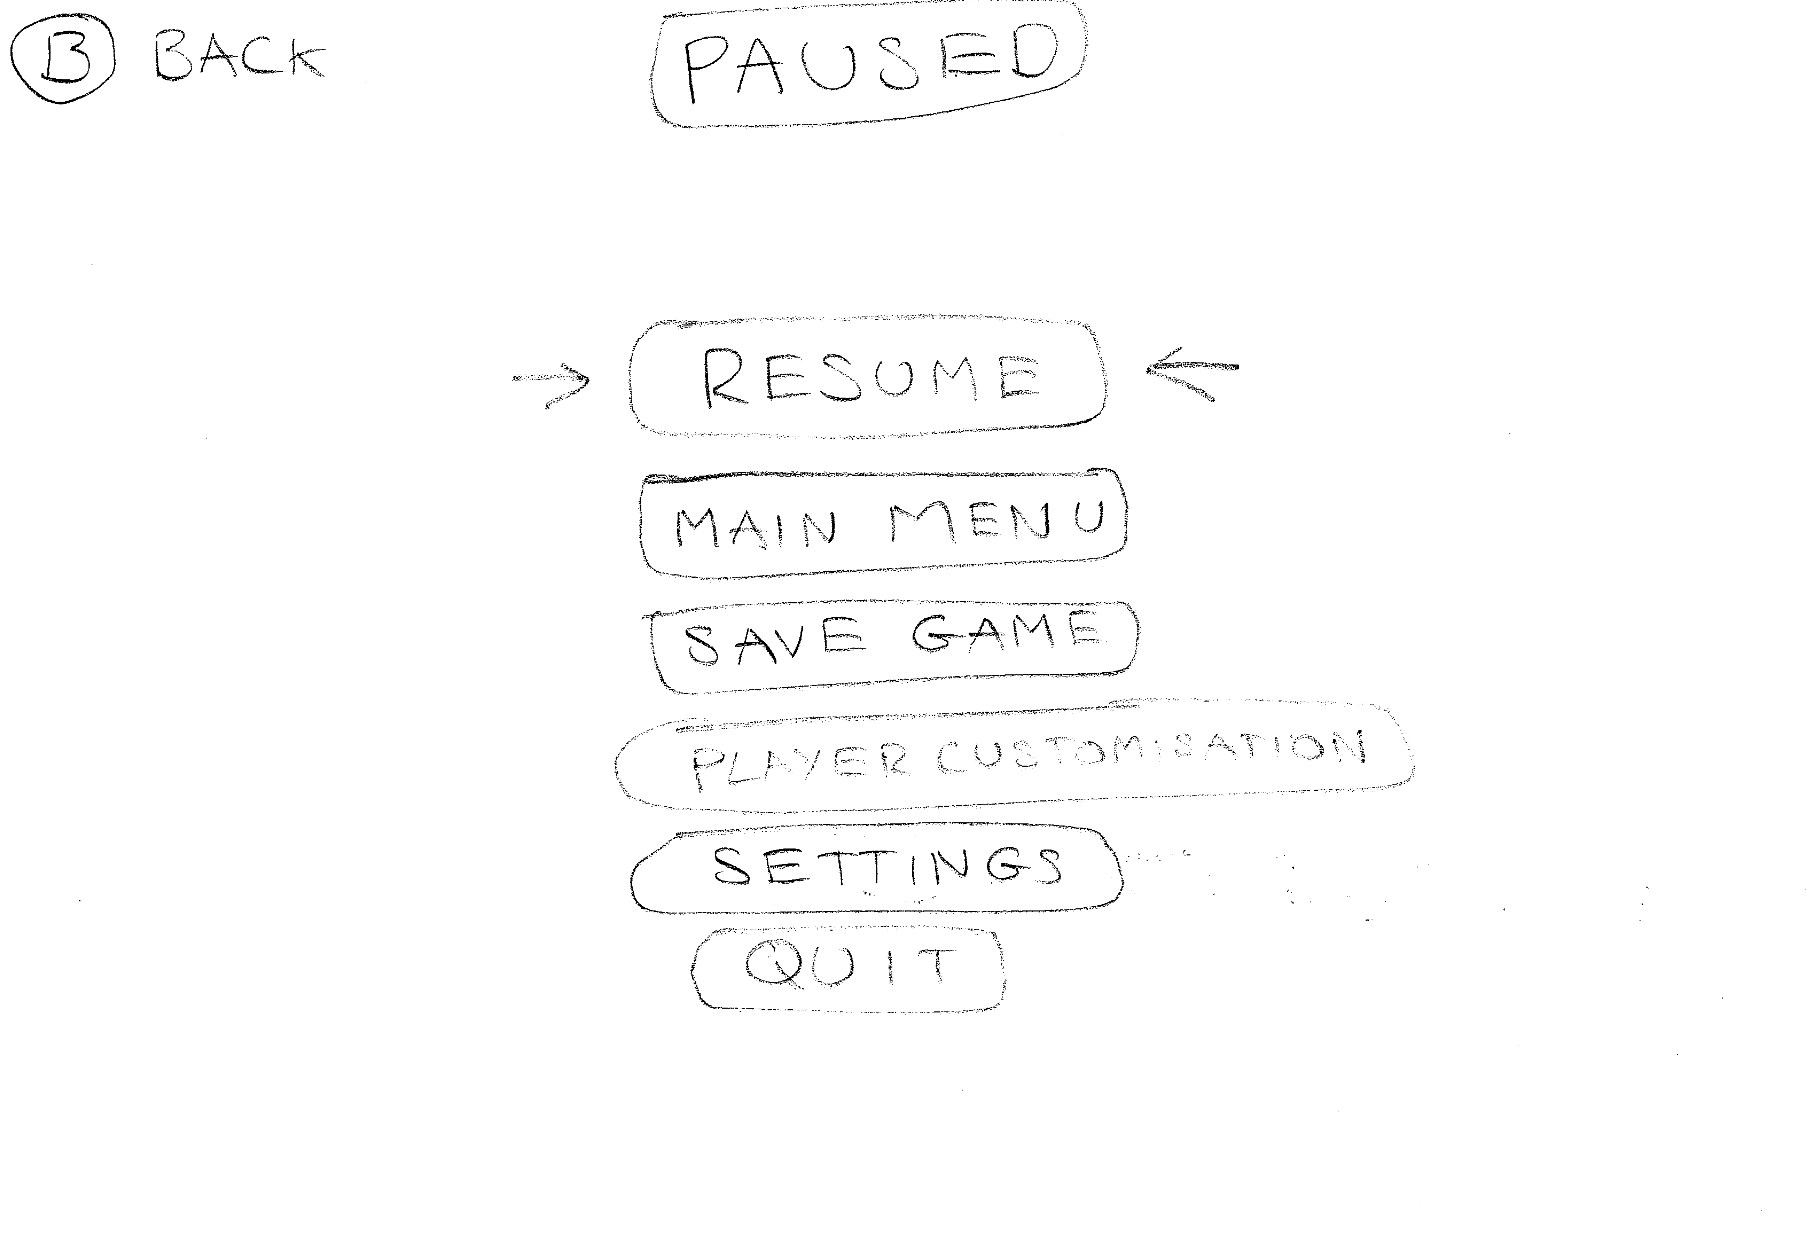 B BACK
PAUSED
RESUME
MAIN MENU
SAVE GAME
PLAYER CUSTOMISATION
SETTINGS
QUIT